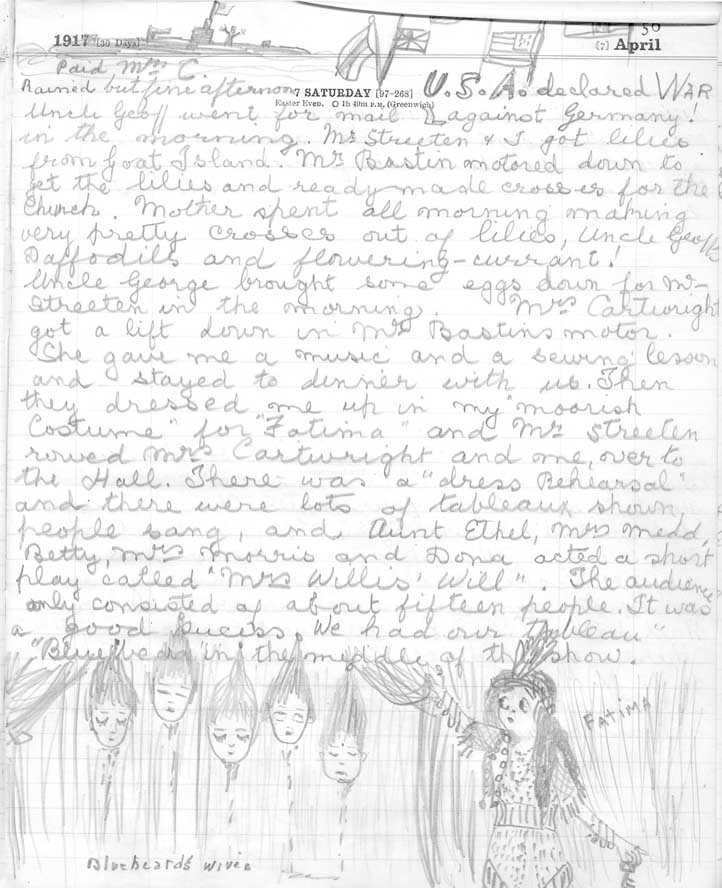 50
1917 [30 Days]
[7] April
Paid Mrs C.
Rained but fine afternoon
7 SATURDAY [97-268]
Easter Even. O 1h 49m P.M. (Greenwich)
U.S.A. declared WAR
against Germany!
Uncle Geoff went for mail
in the morning. Mr Streeten & I got lilies
from Goat Island. Mr Bastin motored down to
get the lilies and ready made crosses for the
Church. Mother spent all morning making
very pretty crosses out of lilies, Uncle Geoff's
Daffodils and flowering-currant!
Uncle George brought some eggs down for Mr
Streeten in the morning. Mrs Cartwright
got a lift down in Mr Bastins motor.
She gave me a music and a sewing lesson
and stayed to dinner with us. Then
they dressed me up in my "moorish
Costume" for "Fatima" and Mr Streeten
rowed Mrs Cartwright and me, over to
the Hall. There was a "dress Rehearsal"
and there were lots of tableaux shown,
people sang, and Aunt Ethel, Mrs Medd,
Betty, Mrs Morris and Dona acted a short
play called "Mrs Willis' Will". The audience
only consisted of about fifteen people. It was
a good sucess. We had our Tableau"
"Bluebeard" in the middle of the show.
FATIMA
Bluebeard's Wives